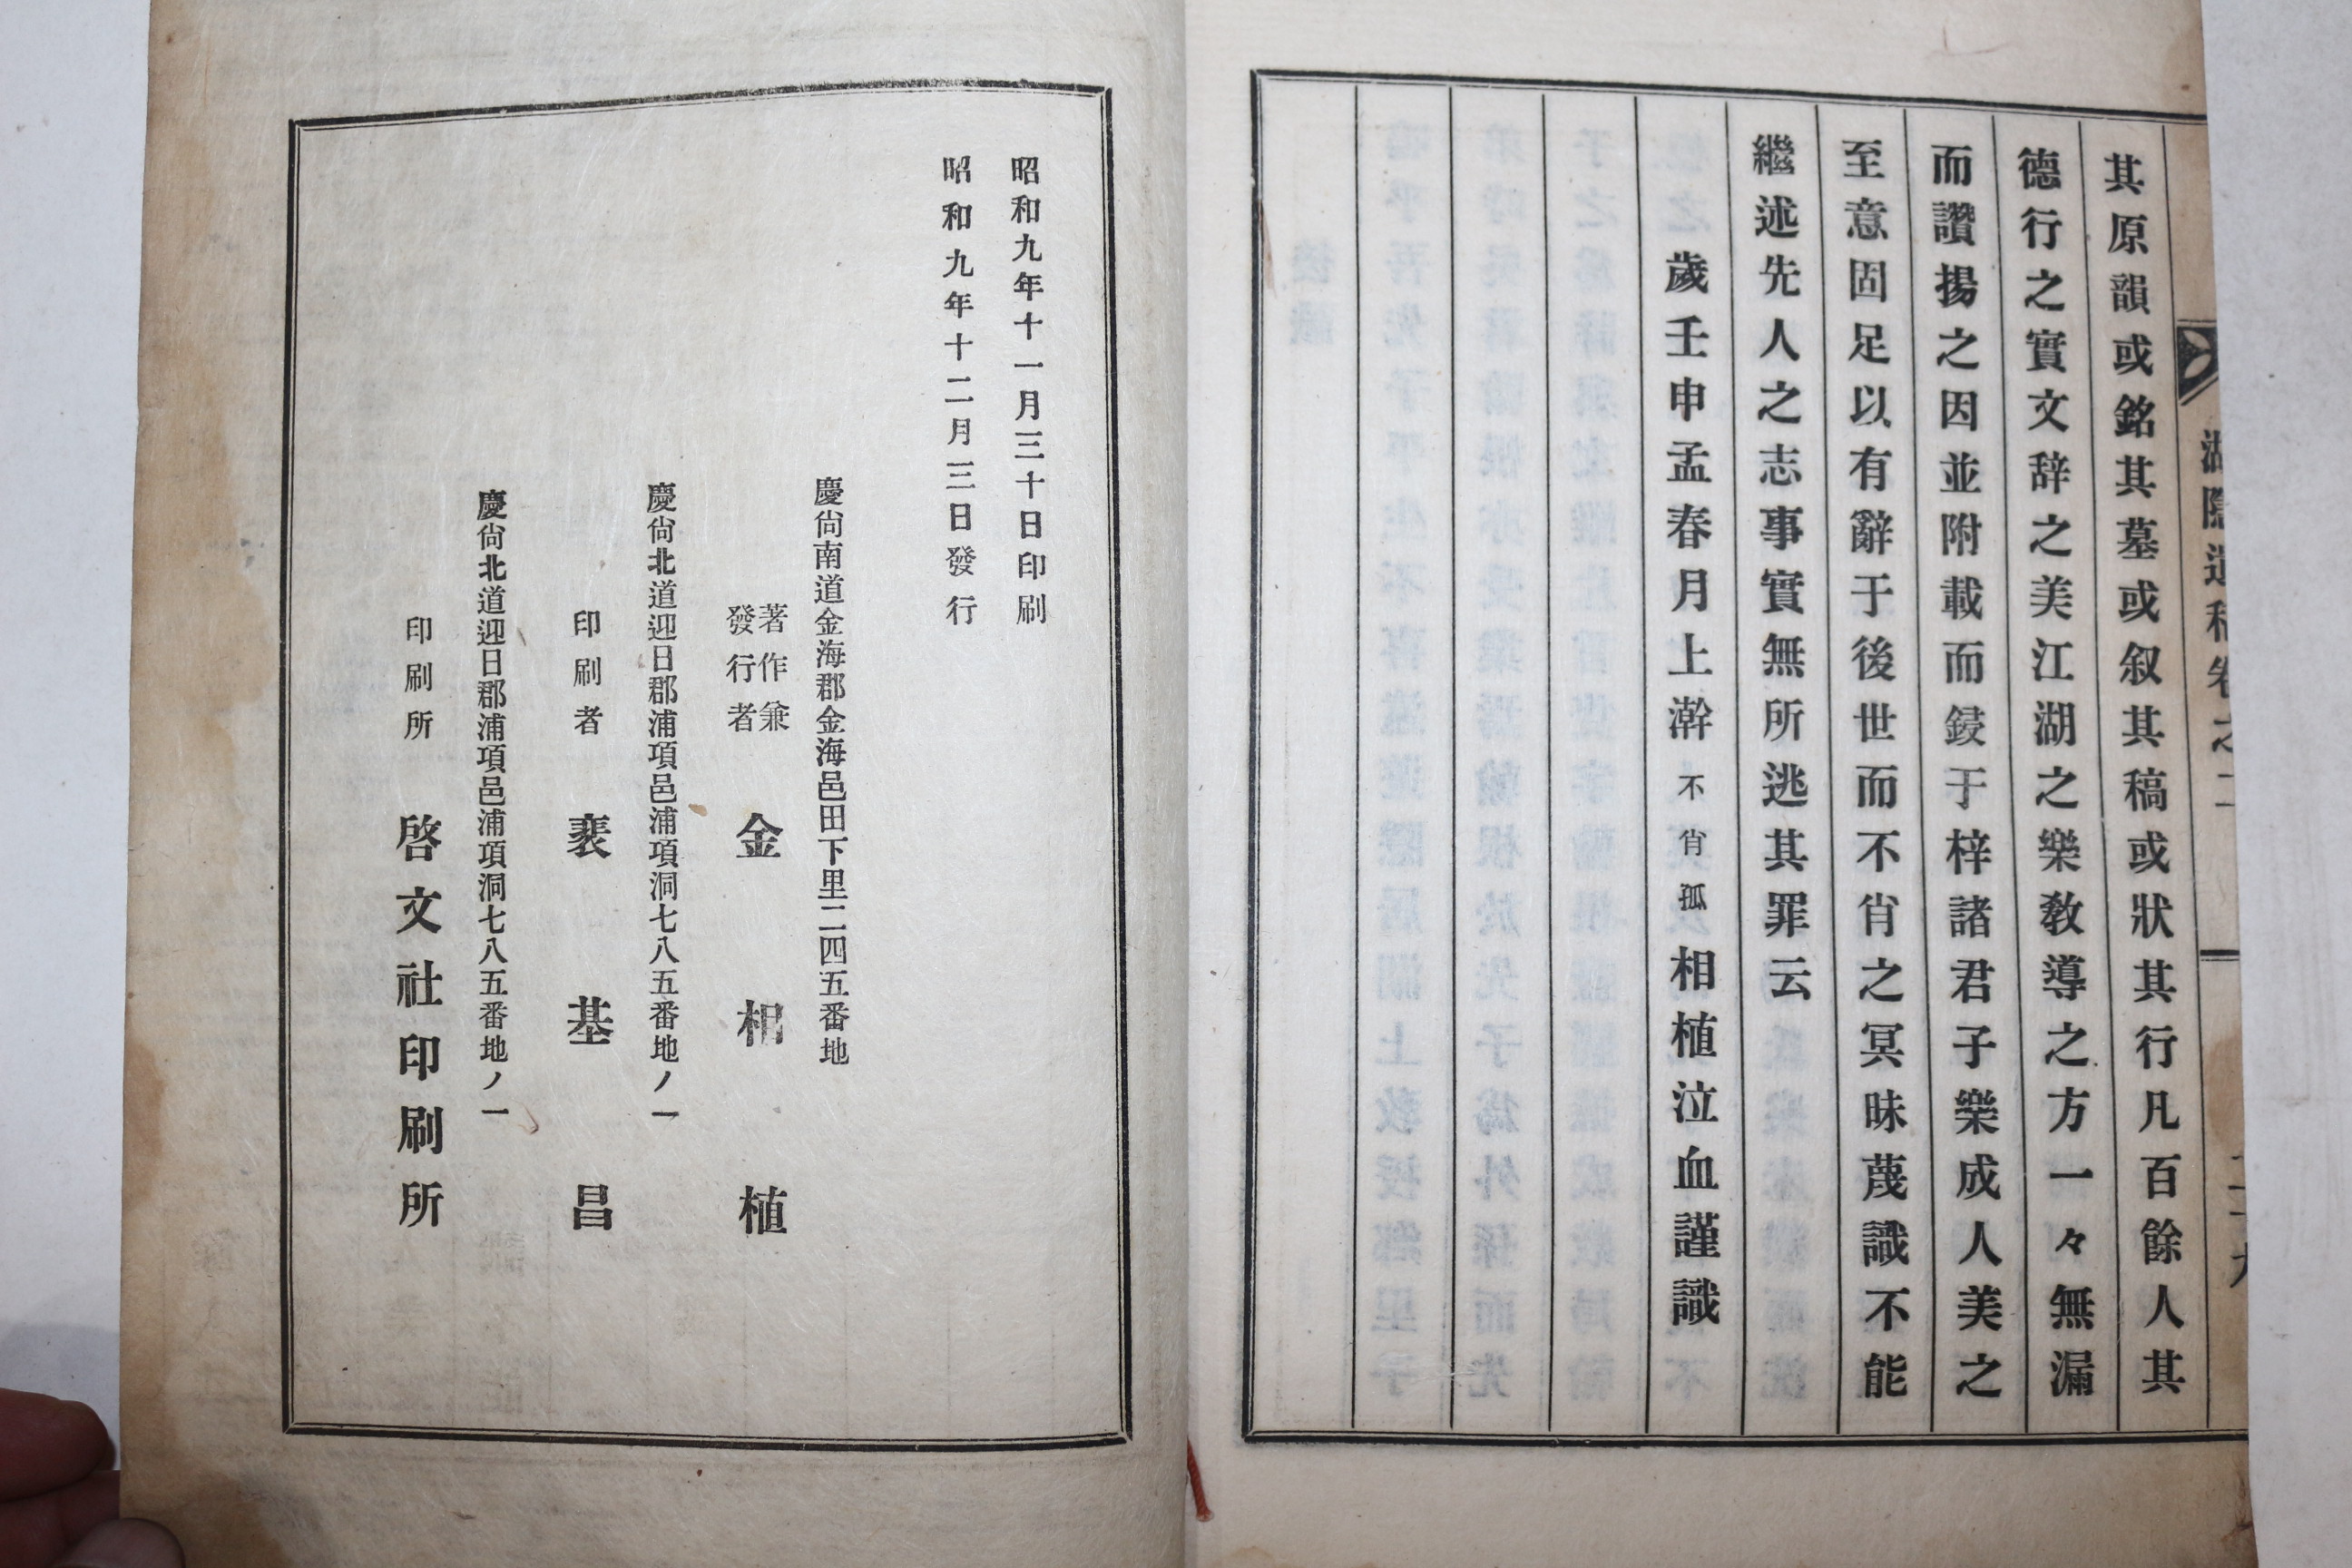 湖隱遺稿卷之二
其原韻或銘其墓或叙其稿或狀其行凡百餘人其
德行之實文辞之美江湖之樂敎導之方一々無漏
而讚揚之因並附載而鋟于梓諸君子樂成人美之
至意固足以有辭于後世而不肖之冥昧蔑識不能
繼述先人之志事實無所逃其罪云
歲壬申孟春月上澣不肖孤相植泣血謹識
昭和九年十一月三十日印刷
昭和九年十二月三日發行
慶尙南道金海郡金海邑田下里二四五番地
著作兼
發行者
金相植
慶尙北道迎日郡浦項邑浦項洞七八五番地ノ一
印刷者 裵基昌
慶尙北道迎日郡浦項邑浦項洞七八五番地ノ一
印刷所 啓文社印刷所